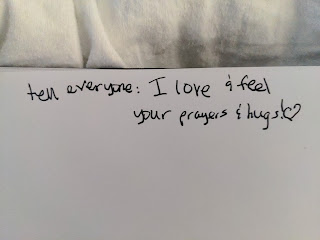 tell everyone: I love & feel
your prayers & hugs!♡